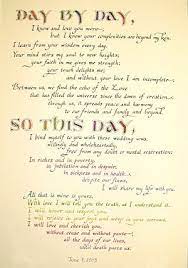 DAY BY DAY,
I know and love you more—
but I know your complexities are beyond my ken.
I learn from your wisdom every day.
Your mind stirs my soul to new heights;
your faith in me gives me strength;
your touch delights me;
and without your love I am incomplete—
Between us, we find the echo of the Love
that has filled our universe since the dawn of creation—
through us, it spreads peace and harmony
to our families and friends and beyond.
SO THIS DAY,
I bind myself to you with these wedding vows,
willingly and wholeheartedly,
free from any doubt or mental reservation:
In riches and in poverty,
in jubilation and in despair,
in sickness and in health,
despite our flaws,
I will share my life with you.
All that is mine is yours.
With love I will tell you the truth, as I understand it.
I will honor and respect you,
I will rejoice in your joys and solace in your sorrows.
I will love and cherish you,
without cease and without pause—
all the days of our lives,
until death parts us.
June 7, 2003